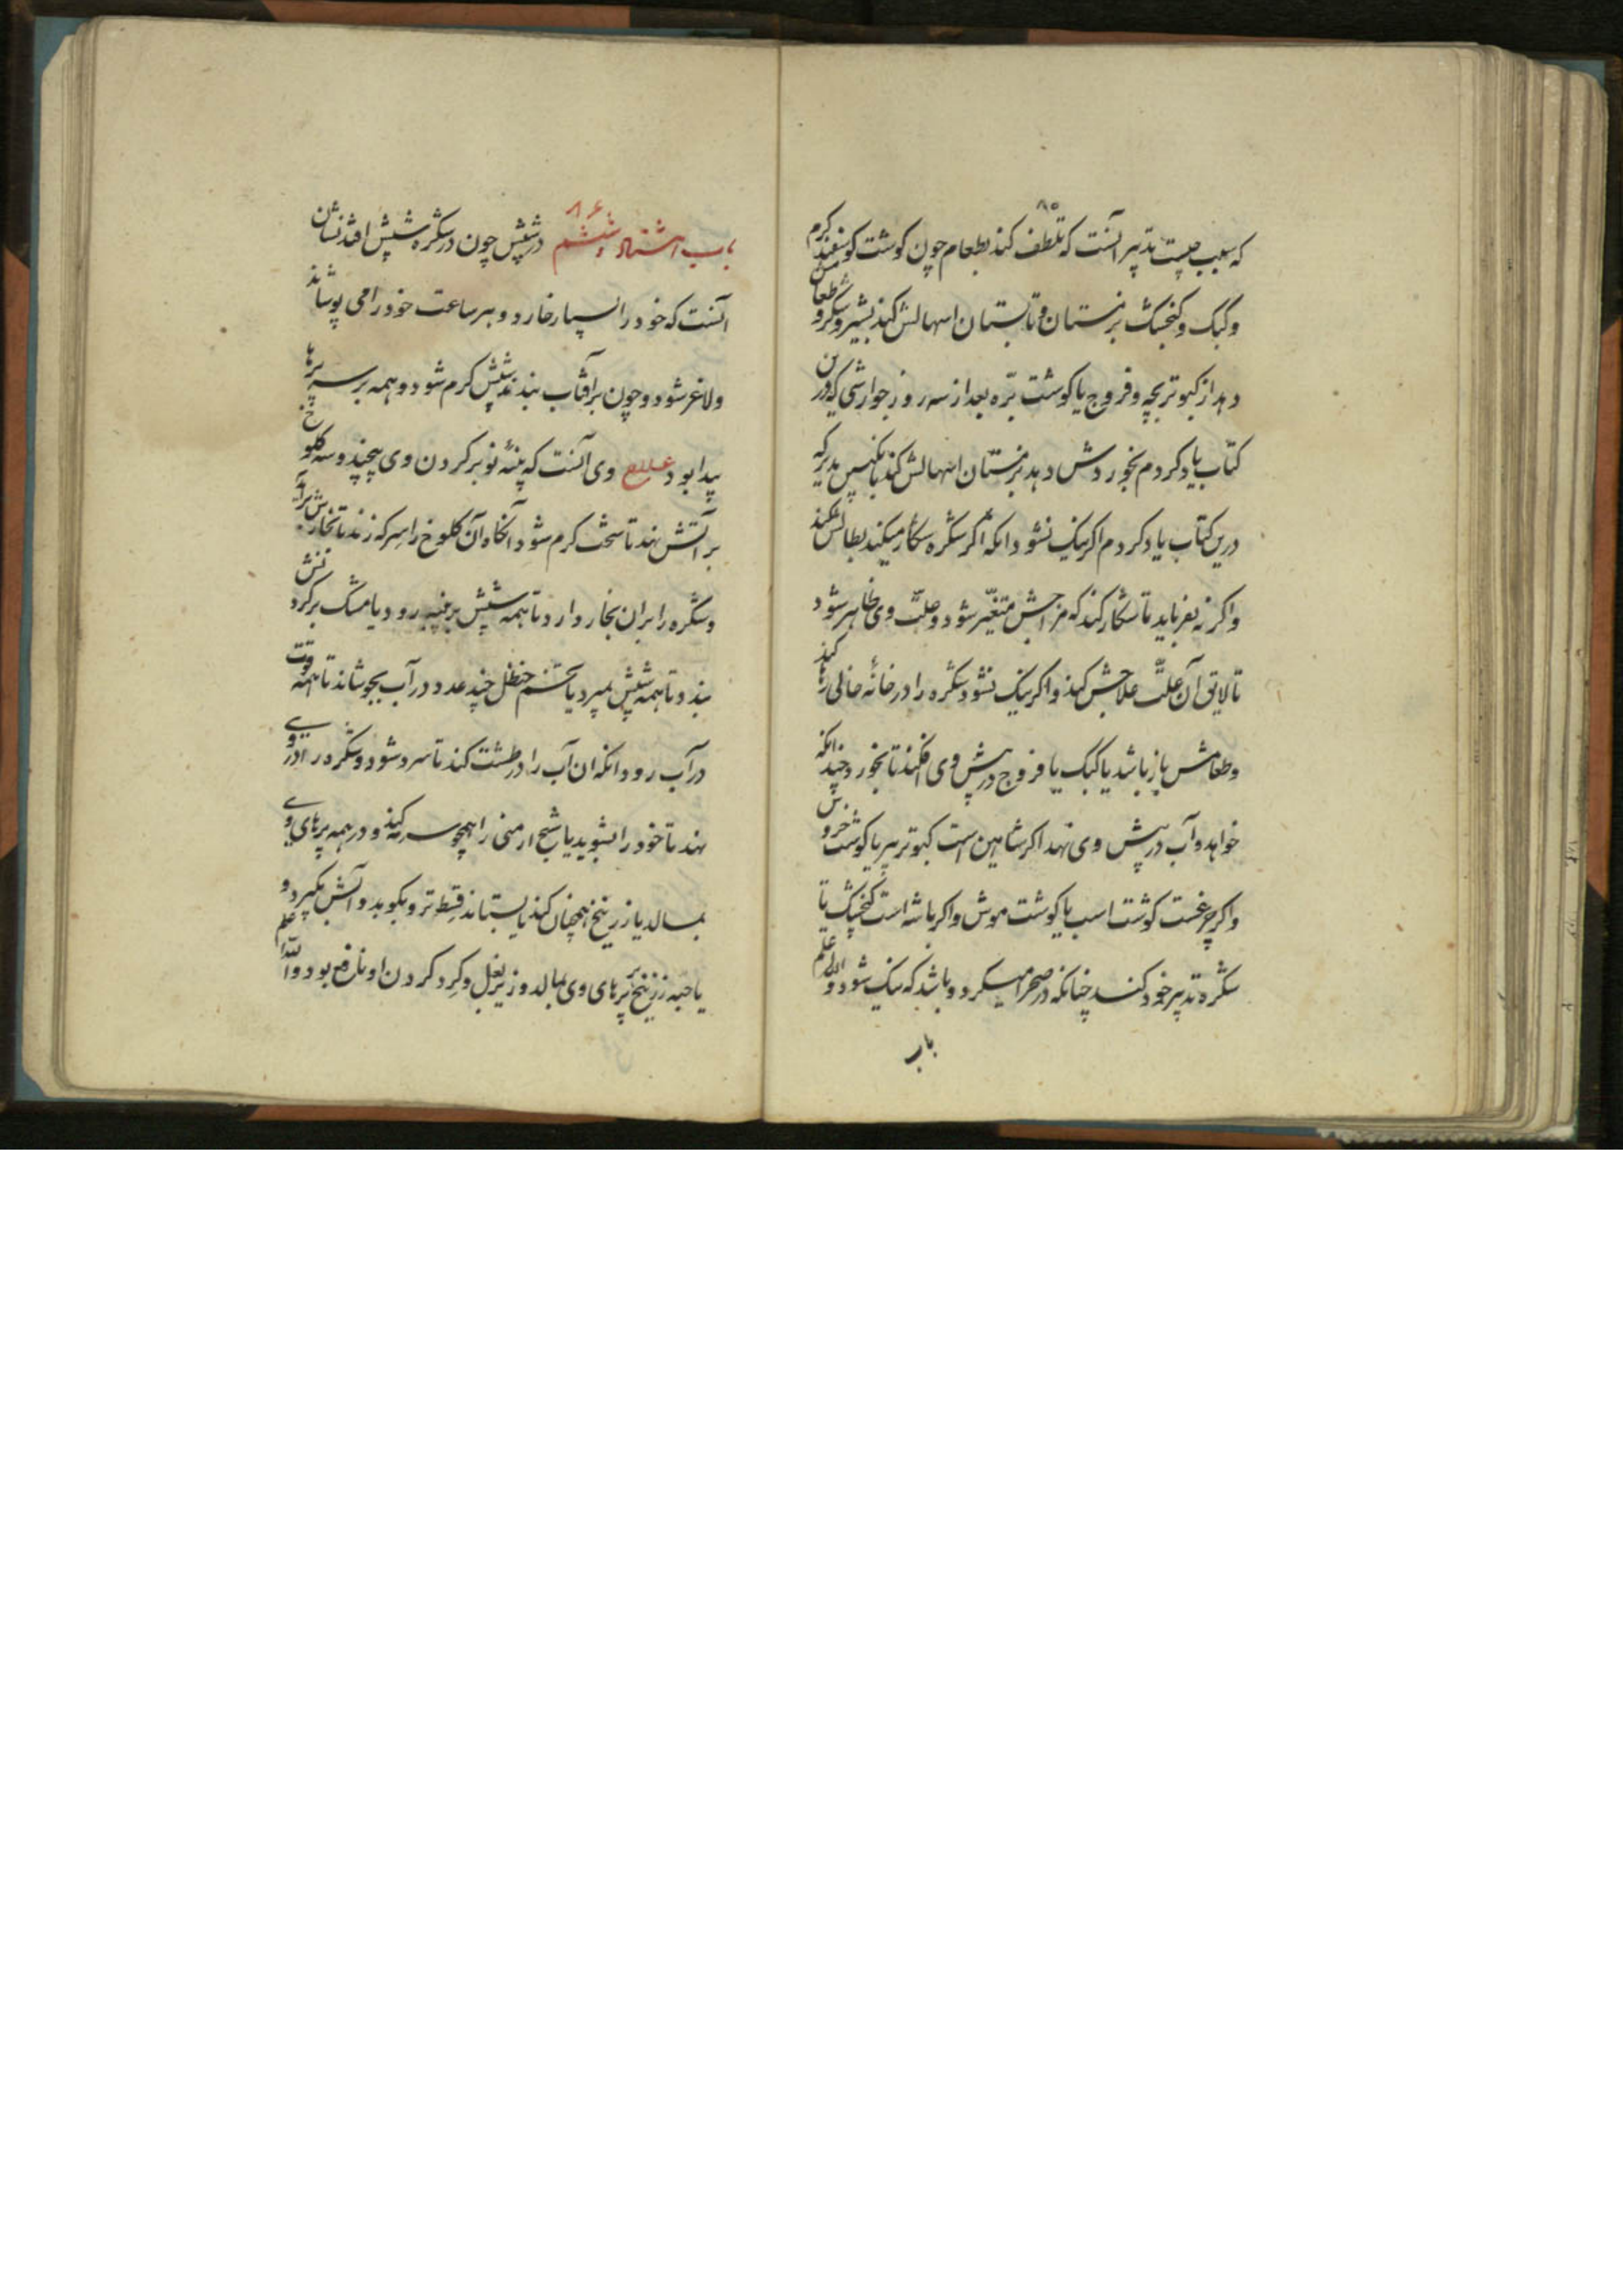 ۸۵
که سبب چیست تدبیر آنست که تلطف کند بطعام چون کوشت کوسفند کرم
وکبک وکنجشک بزمستان وتابستان اسهالش کند بشیر وشکر وطعامش
دهد از کبوتربچه وفروج یا کوشت برّه بعد از سه روز جوارشی که درین
کتاب یاد کردم بخوردش دهد بزمستان اسهالش کند بدیکر که
درین کتاب یاد کردم اکر نیک نشود انکه اکر شکره شکار میکند بطالش نکند
واکر نه بفرماید تا شکار کند که مزاجش متغیّر شود وعلّت وی ظاهر شود
تا لایق آن علّت علاجش کند واکر نیک نشود شکره را در خانهٔ خالی رها کند
وطعامش باز باشد یا کبک یا فروج در پیش وی افکند تا بخورد چندانکه
خواهد وآب در پیش وی نهد اکر شاهین است کبوتر پیر یا کوشت خروس
واکر چرغست کوشت اسب یا کوشت موش واکر باشه است کنجشک تا
شکره تدبیر خود کند چنانکه در صحرا میکرد وباشد که نیک شود والله اعلم
باب
۸۶
باب هشتاد وششم در شپش چون در شکره شپش افتد نشان
آنست که خود را بسیار خارد وهر ساعت خود را می پوشاند
ولاغر شود وچون بر آفتاب بندند شپش کرم شود وهمه بر سر پرها
پیدا بود علاج وی آنست که پنبهٔ نو بر کردن وی پیچید وسه کلوخ
بر آتش نهند تا سخت کرم شود آنکاه آن کلوخ را سرکه زند تا بخارش برآید
وشکره را بران بخار دارد تا همه شپش بر پنبه رود یا مشک بر کردنش
بندد تا همه شپش بمیرد یا تخم حنظل چند عدد در آب بجوشاند تا همه قوت
در آب رود وانکه ان آب را در طشت کند تا سرد شود وشکره را در وی
نهند تا خود را بشوید یا شیح ارمنی را همچو سرمه کند ودر همه پرهای وی
بمالد یا زرنیخ همچنان کند یا بستاند قسط تر وبکوبد وآبش بکیرد و
یا حبه زرنیخ بر پرهای وی بمالد وزیر بغل وکرد کردن او نافع بود والله اعلم